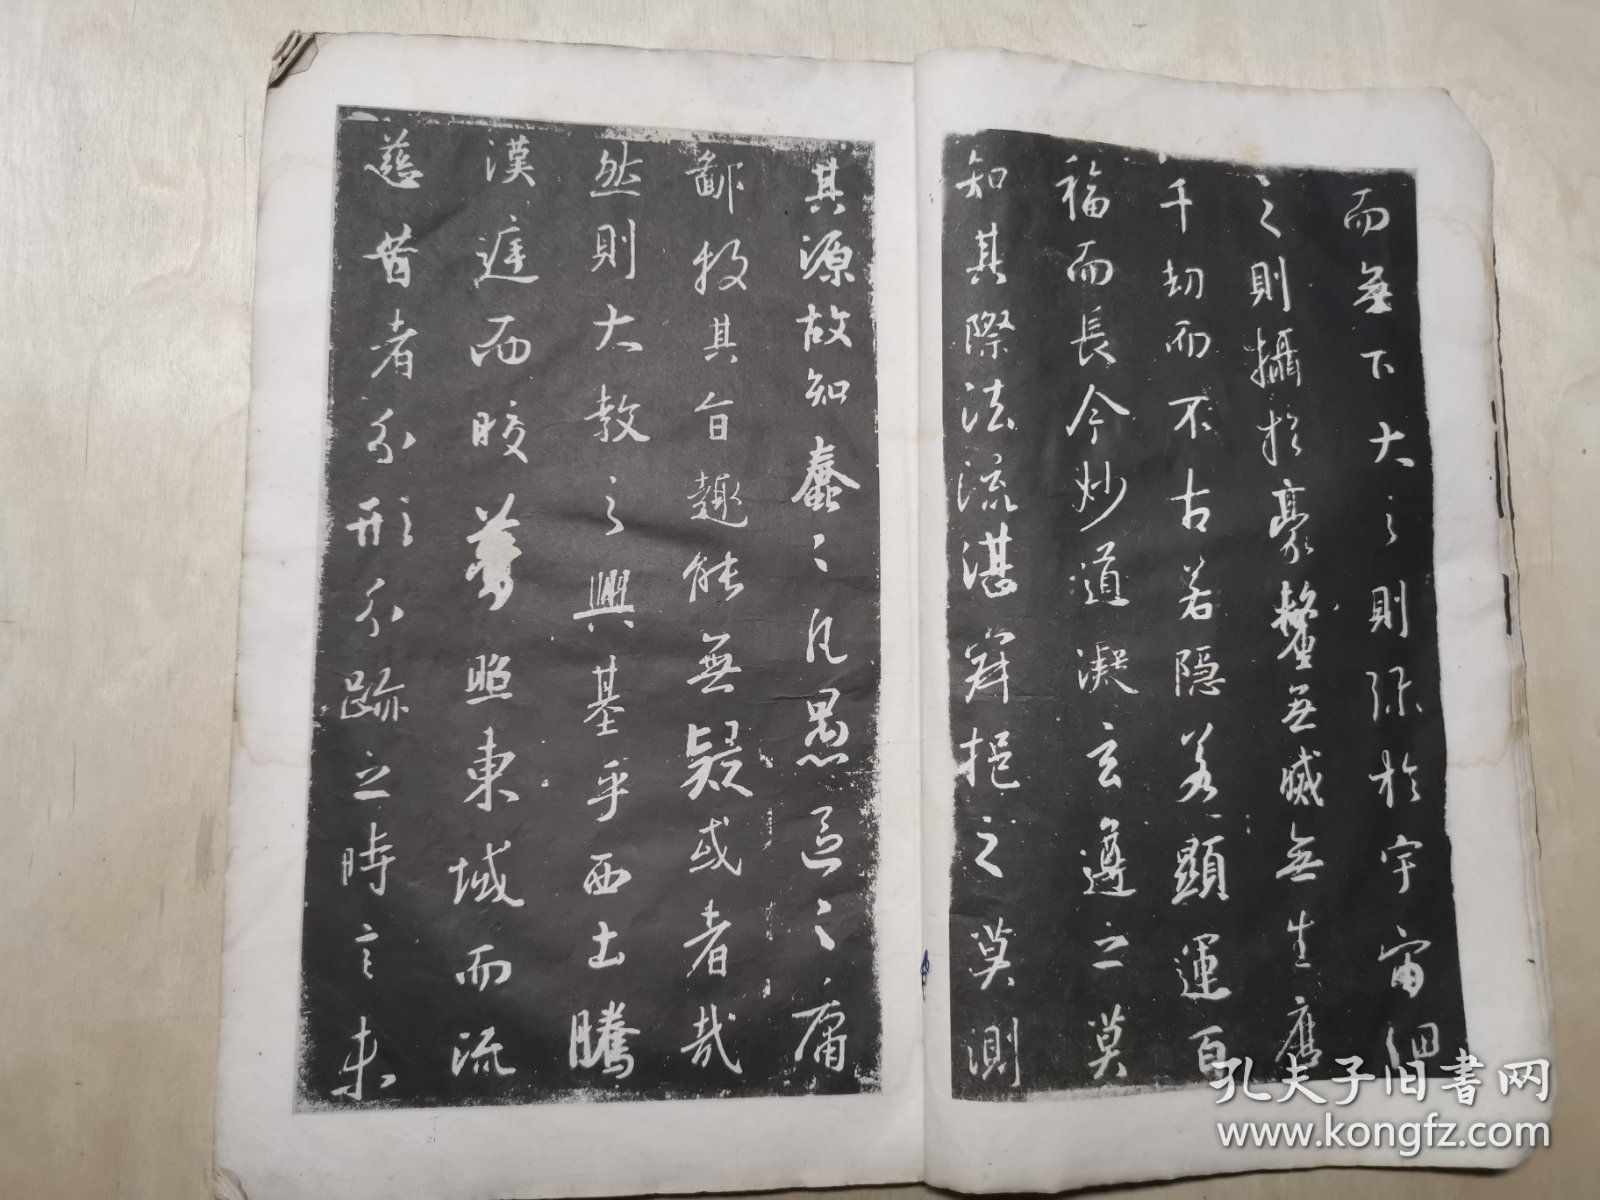 而無下大之則弥於宇宙細
之則攝於豪氂無滅無生歷
千劫而不古若隱若顯運百
福而長今妙道凝玄遵之莫
知其際法流湛寂挹之莫測
其源故知蠢〻凡愚區〻庸
鄙投其旨趣能無疑或者哉
然則大教之興基乎西土騰
漢庭而皎夢照東域而流
慈昔者分形分跡之時言未
孔夫子旧書网
www.kongfz.com